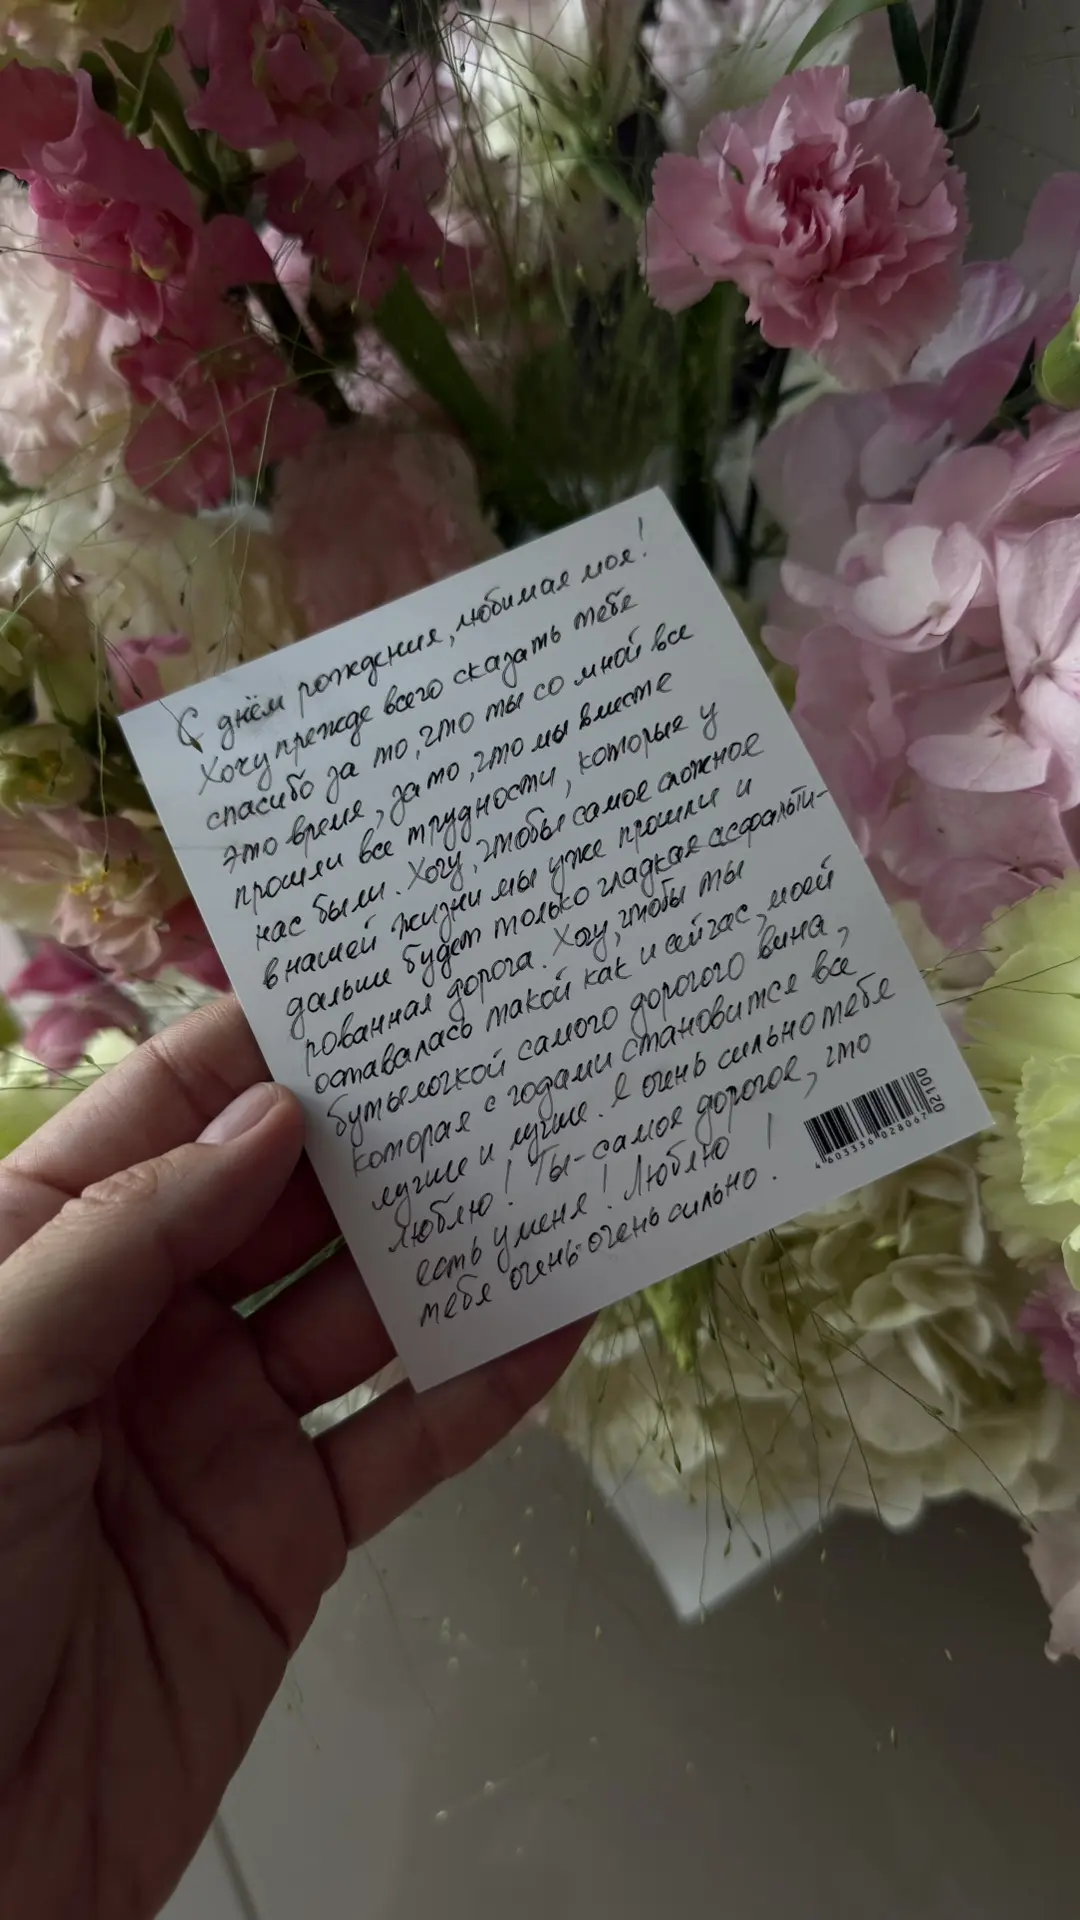 С днём рождения, любимая моя!
Хочу прежде всего сказать тебе
спасибо за то, что ты со мной все
это время, за то, что мы вместе
прошли все трудности, которые у
нас были. Хочу, чтобы самое сложное
в нашей жизни мы уже прошли и
дальше будет только гладкая асфальти-
рованная дорога. Хочу, чтобы ты
оставалась такой как и сейчас, моей
бутылочкой самого дорогого вина,
которая с годами становится все
лучше и лучше. Я очень сильно тебя
люблю! Ты - самое дорогое, что
есть у меня! Люблю
тебя очень-очень сильно!
4 603336 028067
02100